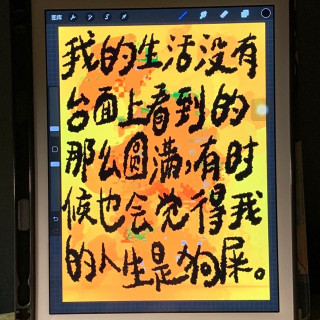 图库
我的生活没有
台面上看到的
那么圆满，有时
候也会觉得我
的人生是狗屎。